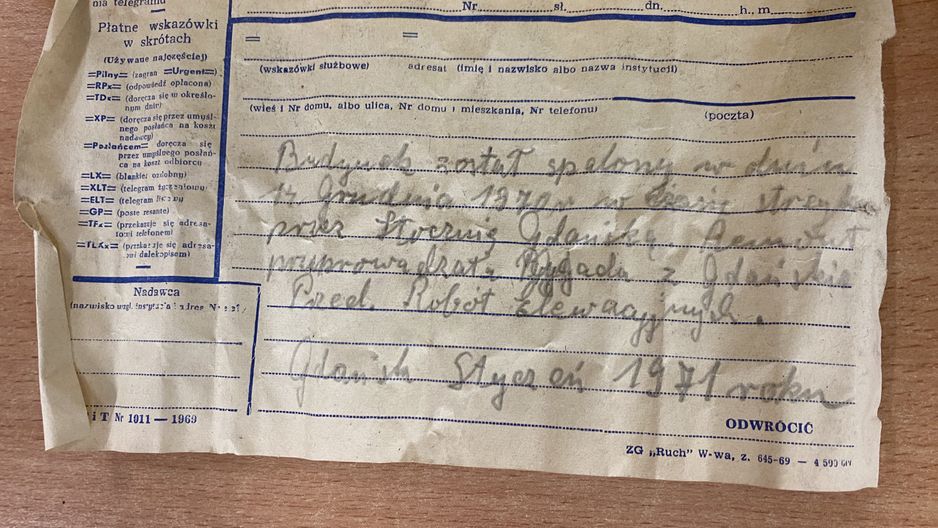 nia telegramu
Płatne wskazówki
w skrótach
(Używane najczęściej)
=Pilny= (zagran =Urgent=)
=RPx= (odpowiedź opłacona)
=TDx= (doręcza się w określonym dniu)
=XP= (doręcza się przez umyślnego posłańca na koszt nadawcy)
=Posłańcem= doręcza się przez umyślnego posłańca na koszt odbiorcy
=LX= (blankiet ozdobny)
=XLT= (telegram
=ELT= (telegram
=GP= (poste restante)
=TFx= (przekazuje się adresatowi telefonem)
=TLXx= (przekazuje się adresatowi dalekopisem)
Nadawca
(nazwisko
Nr sł. dn. h., m.
= =
(wskazówki służbowe) adresat (imię i nazwisko albo nazwa instytucji)
(wieś i Nr domu, albo ulica, Nr domu i mieszkania, Nr telefonu) (poczta)
Budynek został spalony w dniu
Grudnia 1970r w czasie strajku
przez Stocznię Gdańską. Remont
przyprowadzała Brygada z Gdańskie
Przed. Robót Elewacyjnych.
Gdańsk Styczeń 1971 roku
iT Nr 1011 — 1969
ODWRÓCIĆ
ZG „Ruch" W-wa, z. 645-69 —